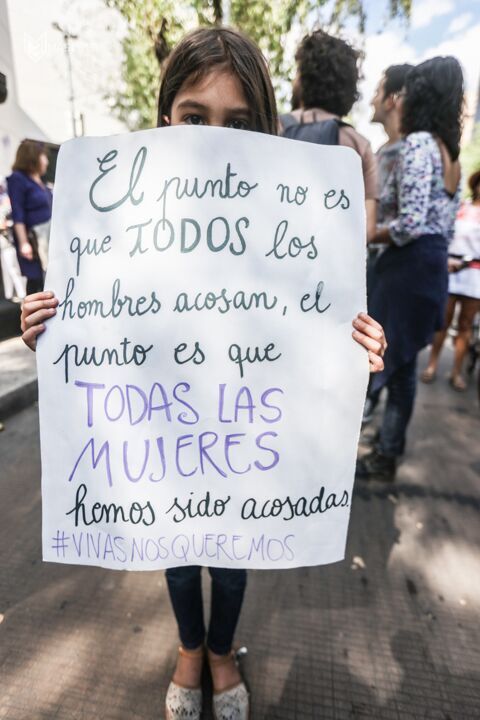 El punto no es
que TODOS los
hombres acosan, el
punto es que
TODAS LAS
MUJERES
hemos sido acosadas.
#VIVASNOSQUEREMOS